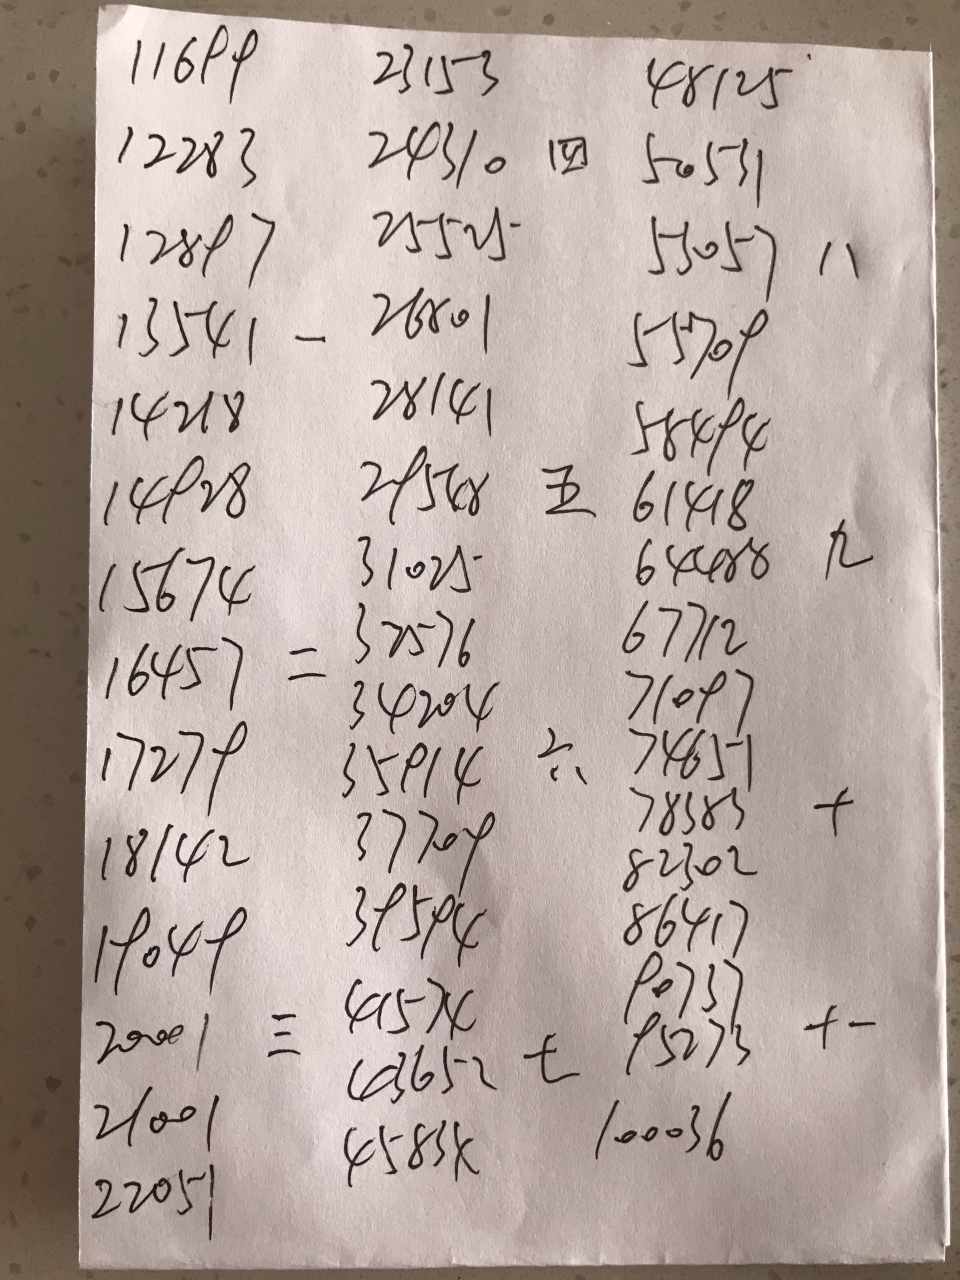 11699
12283
12897
13541 一
14218
14928
15674
16457 二
17279
18142
19049
20001 三
21001
22051
23153
24310 四
25525
26801
28141
29548 五
31025
32576
34204
35914 六
37709
39594
41574
43652 七
45834
48125
50531
53057 八
55709
58494
61418
64488 九
67712
71097
74651
78383 十
82302
86417
90737
95273 十一
100036